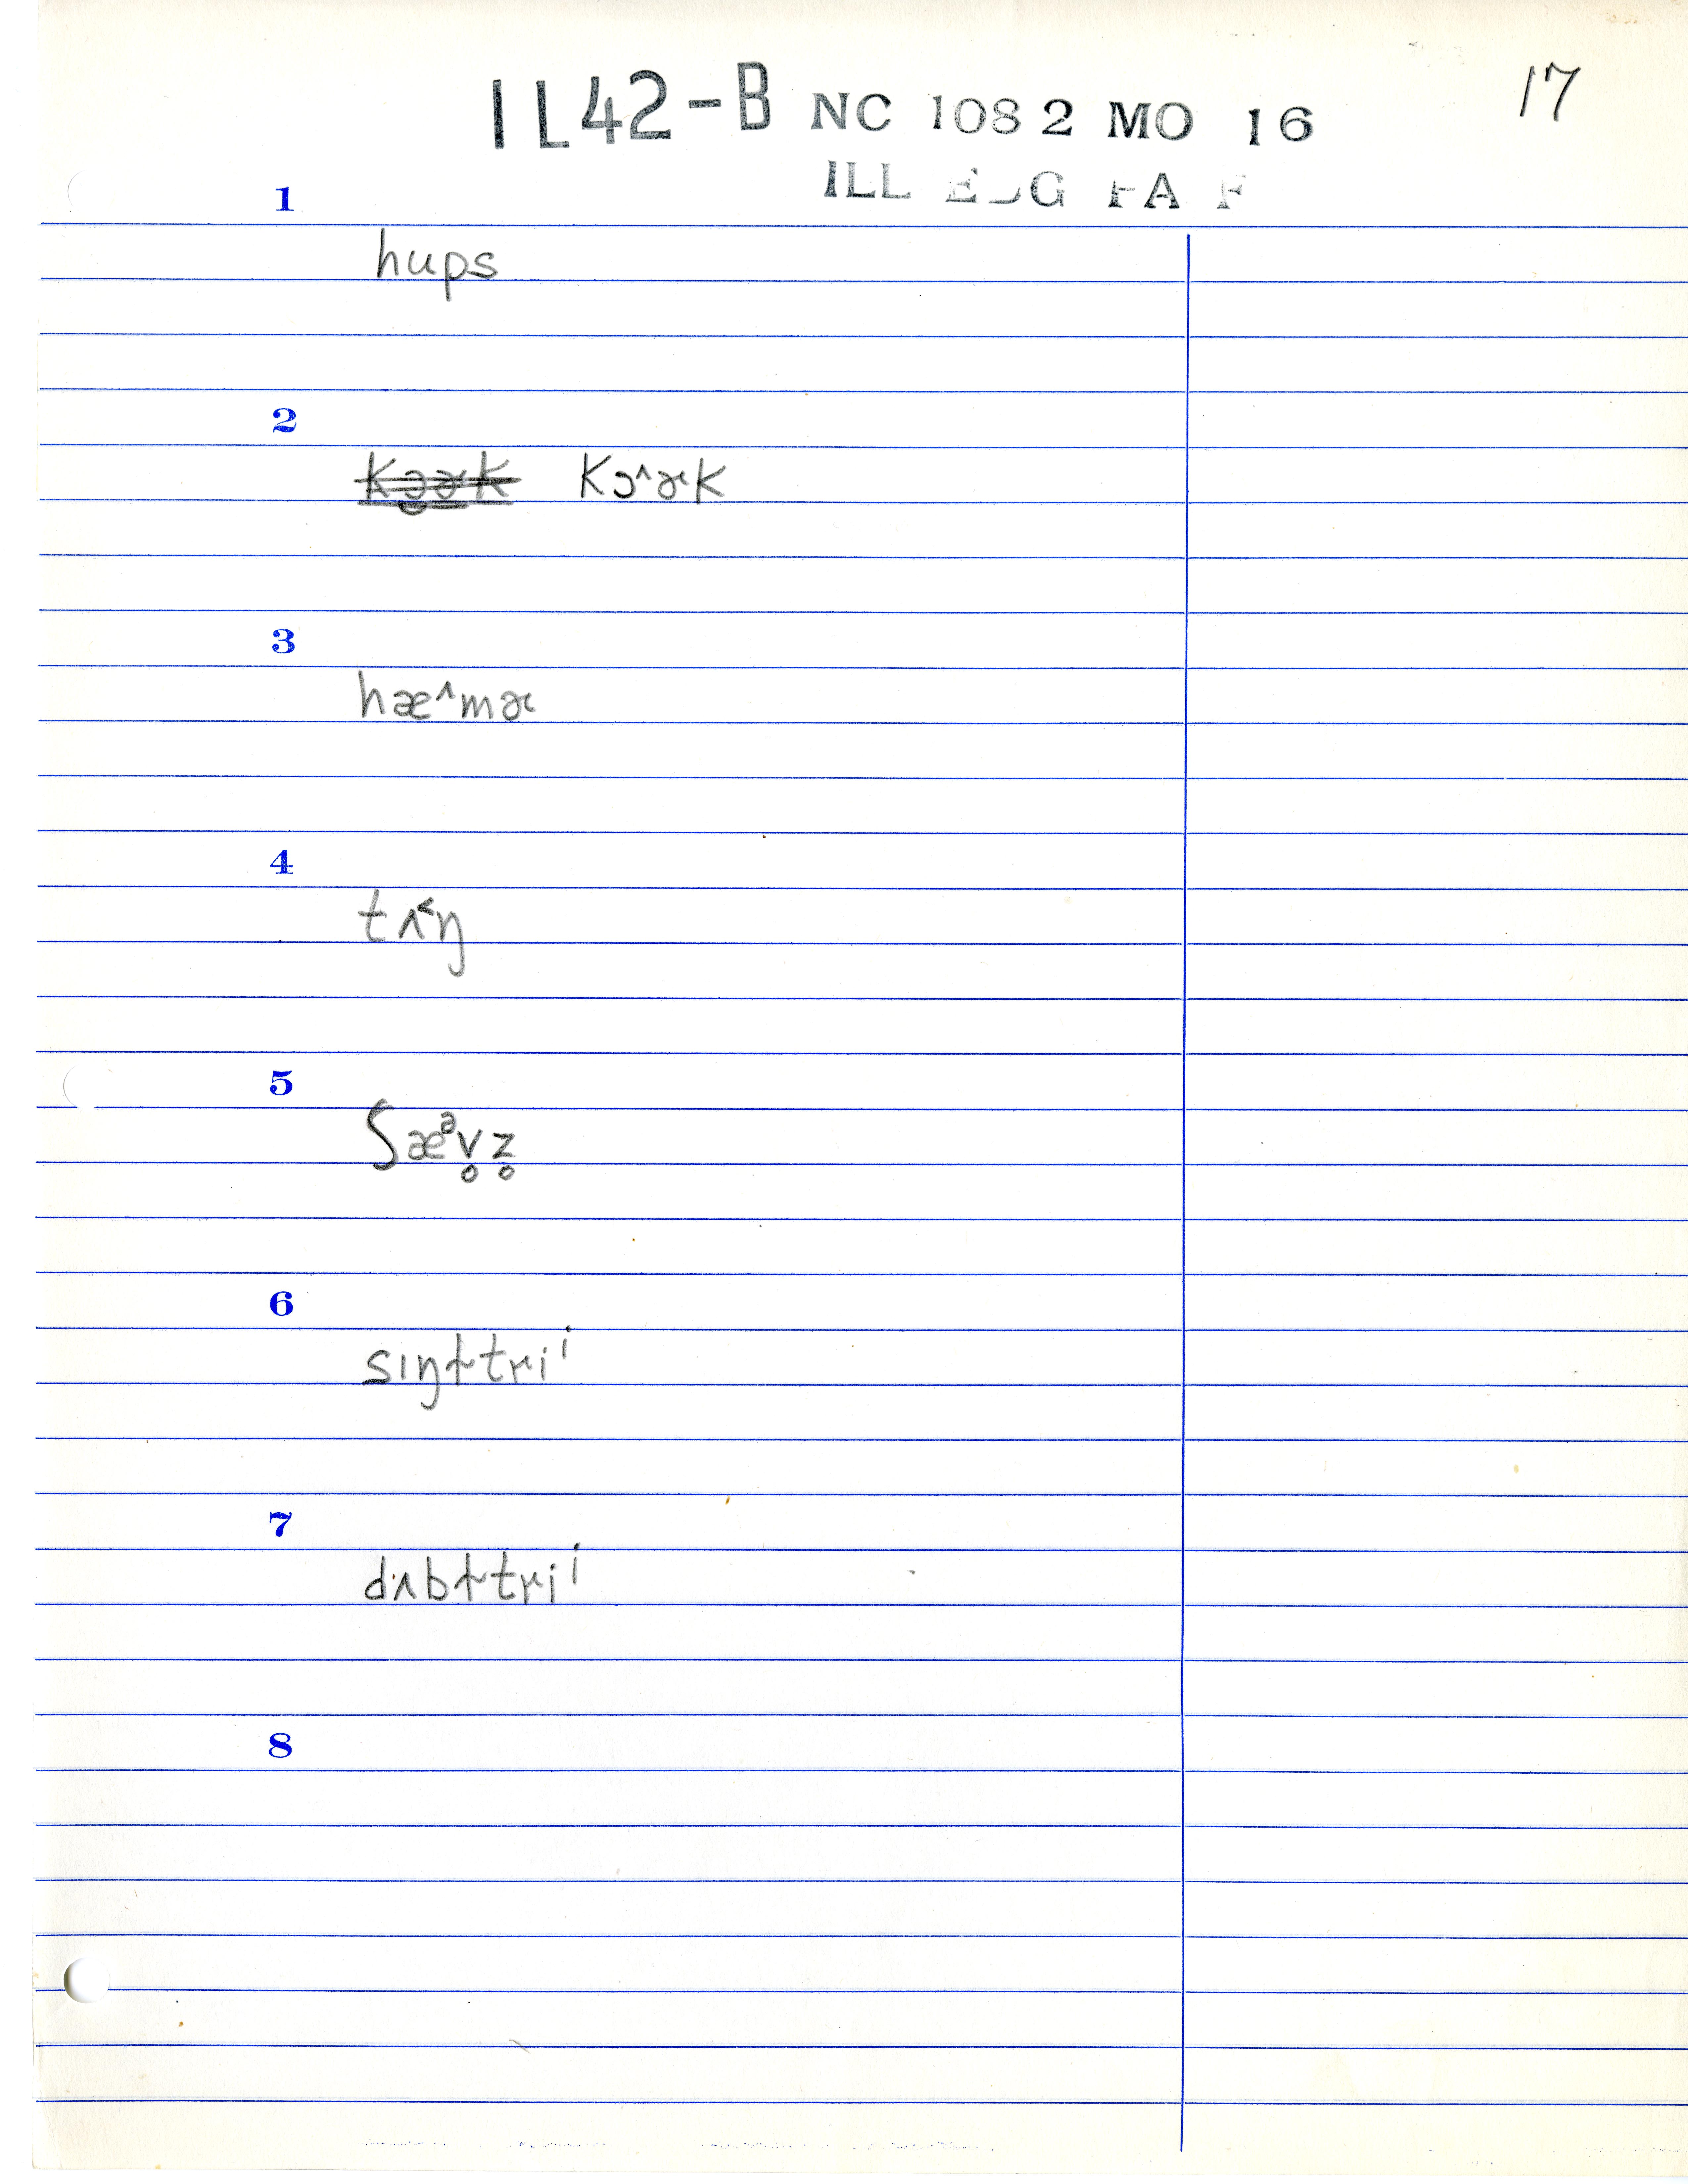 17
IL42-B NC 1082 MO 16
ILL
1
hups
2
kɔɚk kɔ˄ɚk
3
hæ˄mɚ
4
tʌ˂ŋ
5
ʃæᵊv̥z̥
6
sɪŋɫ̩triⁱ
7
dʌbɫ̩triⁱ
8